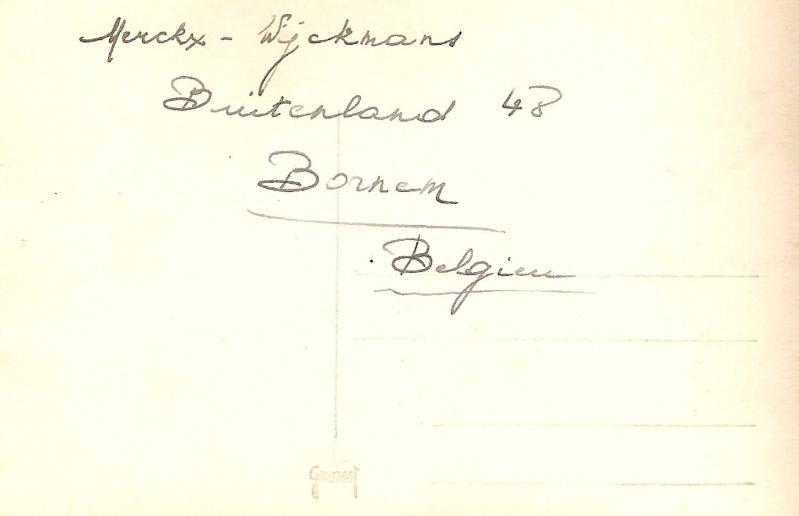 Merckx - Wijckmans
Buitenland 48
Bornem
Belgien
Gevaert